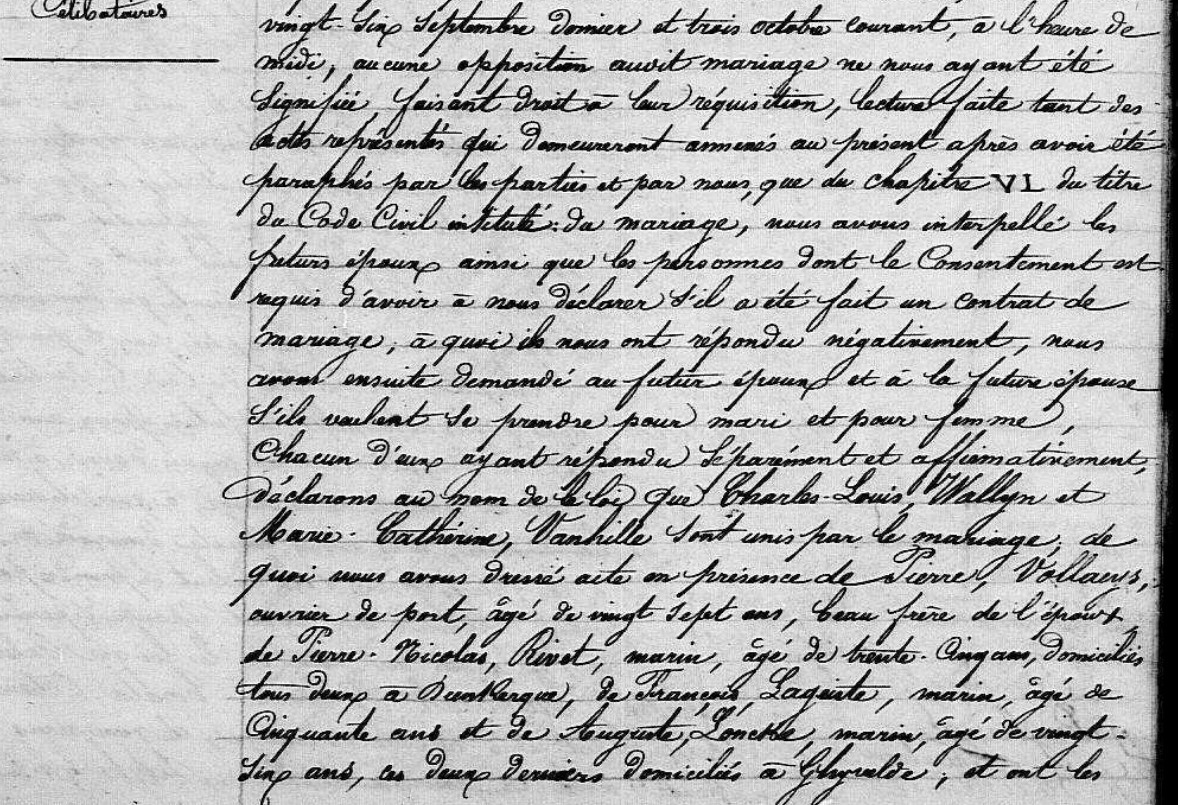 Célibataires
vingt-six Septembre dernier et trois octobre courant, à l'heure de
midi; aucune opposition audit mariage ne nous ayant été
signifiée, faisant droit à leur réquisition, lecture faite tant des
actes représentés qui demeureront annexés au présent après avoir été
paraphés par les parties et par nous, que du chapitre VI du titre
du Code Civil intitulé: du mariage, nous avons interpellé les
futurs époux ainsi que les personnes dont le Consentement est
requis d'avoir à nous déclarer s'il a été fait un contrat de
mariage; à quoi ils nous ont répondu négativement, nous
avons ensuite demandé au futur époux et à la future épouse
s'ils veulent se prendre pour mari et pour femme,
Chacun d'eux ayant répondu séparément et affirmativement,
déclarons au nom de la loi que Charles-Louis, Wallyn et
Marie-Cathérine, Vanhille sont unis par le mariage; de
quoi nous avons dressé acte en présence de Pierre, Vollaeys,
ouvrier de port, âgé de vingt sept ans, beau frère de l'époux
de Pierre-Nicolas, Rivet, marin, âgé de trente-Cinq ans, domiciliés
tous deux à Dunkerque, de François, Lageiste, marin, âgé de
Cinquante ans et de Auguste, Lonckè, marin, âgé de vingt-
six ans, ces deux derniers domiciliés à Ghyvelde; et ont les